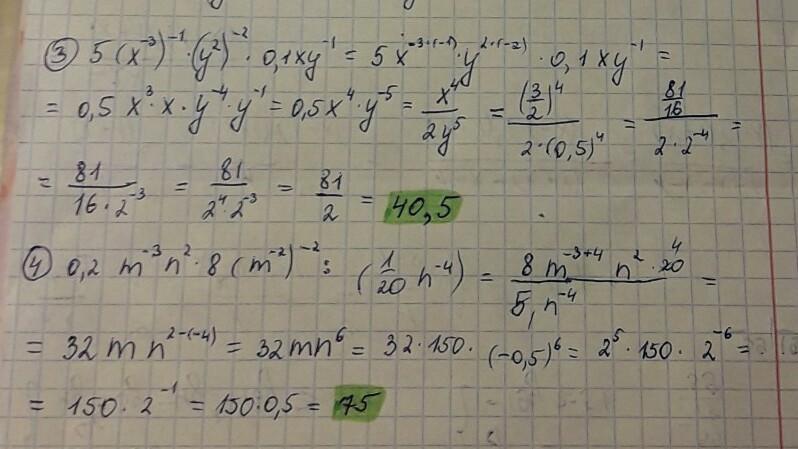 ③ 5(x⁻³)⁻¹·(y²)⁻²·0,1xy⁻¹ = 5x⁻³·⁽⁻¹⁾·y²·⁽⁻²⁾·0,1xy⁻¹ =
= 0,5x³·x·y⁻⁴·y⁻¹ = 0,5x⁴·y⁻⁵ = x⁴/2y⁵ = (3/2)⁴/2·(0,5)⁴ = 81/16/2·2⁻⁴ =
= 81/16·2⁻³ = 81/2⁴·2⁻³ = 81/2 = 40,5
④ 0,2 m⁻³n²·8(m⁻²)⁻² : (1/20 n⁻⁴) = 8m⁻³⁺⁴ n²·20 4/5, n⁻⁴ =
= 32 m n²⁻⁽⁻⁴⁾ = 32mn⁶ = 32·150·(-0,5)⁶ = 2⁵·150·2⁻⁶ =
= 150·2⁻¹ = 150·0,5 = 75